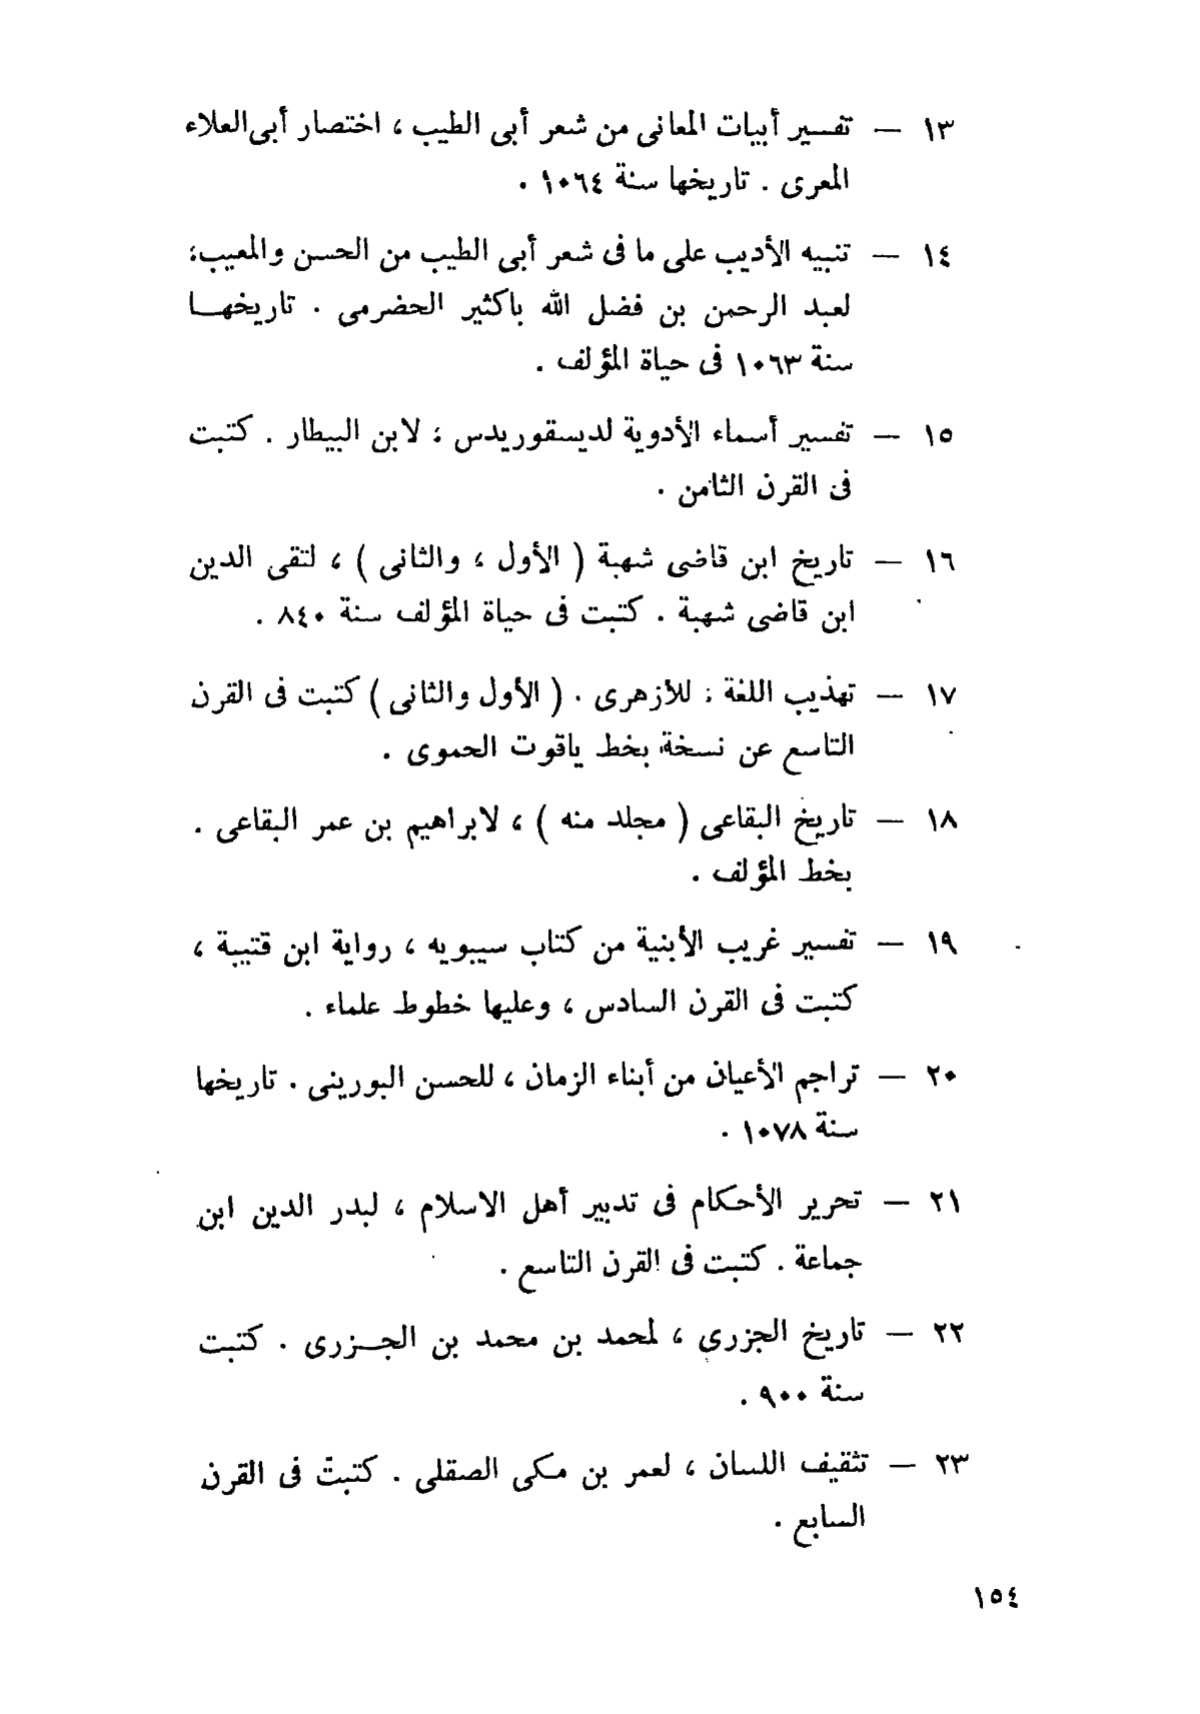 ١٣ — تفسير أبيات المعانى من شعر أبى الطيب ، اختصار أبى العلاء
المعرى . تاريخها سنة ١٠٦٤ .
١٤ — تنبيه الأديب على ما فى شعر أبى الطيب من الحسن والمعيب،
لعبد الرحمن بن فضل الله باكثير الحضرمى . تاريخهــا
سنة ١٠٦٣ فى حياة المؤلف .
١٥ — تفسير أسماء الأدوية لديسقوريدس ، لابن البيطار . كتبت
فى القرن الثامن .
١٦ — تاريخ ابن قاضى شهبة ( الأول ، والثانى ) ، لتقى الدين
ابن قاضى شهبة . كتبت فى حياة المؤلف سنة ٨٤٠ .
١٧ — تهذيب اللغة ، للأزهرى . ( الأول والثانى ) كتبت فى القرن
التاسع عن نسخة بخط ياقوت الحموى .
١٨ — تاريخ البقاعى ( مجلد منه ) ، لابراهيم بن عمر البقاعى .
بخط المؤلف .
١٩ — تفسير غريب الأبنية من كتاب سيبويه ، رواية ابن قتيبة ،
كتبت فى القرن السادس ، وعليها خطوط علماء .
٢٠ — تراجم الأعيان من أبناء الزمان ، للحسن البورينى . تاريخها
سنة ١٠٧٨ .
٢١ — تحرير الأحكام فى تدبير أهل الاسلام ، لبدر الدين ابن
جماعة . كتبت فى القرن التاسع .
٢٢ — تاريخ الجزرى ، لمحمد بن محمد بن الجــزرى . كتبت
سنة ٩٠٠ .
٢٣ — تثقيف اللسان ، لعمر بن مكى الصقلى . كتبت فى القرن
السابع .
١٥٤